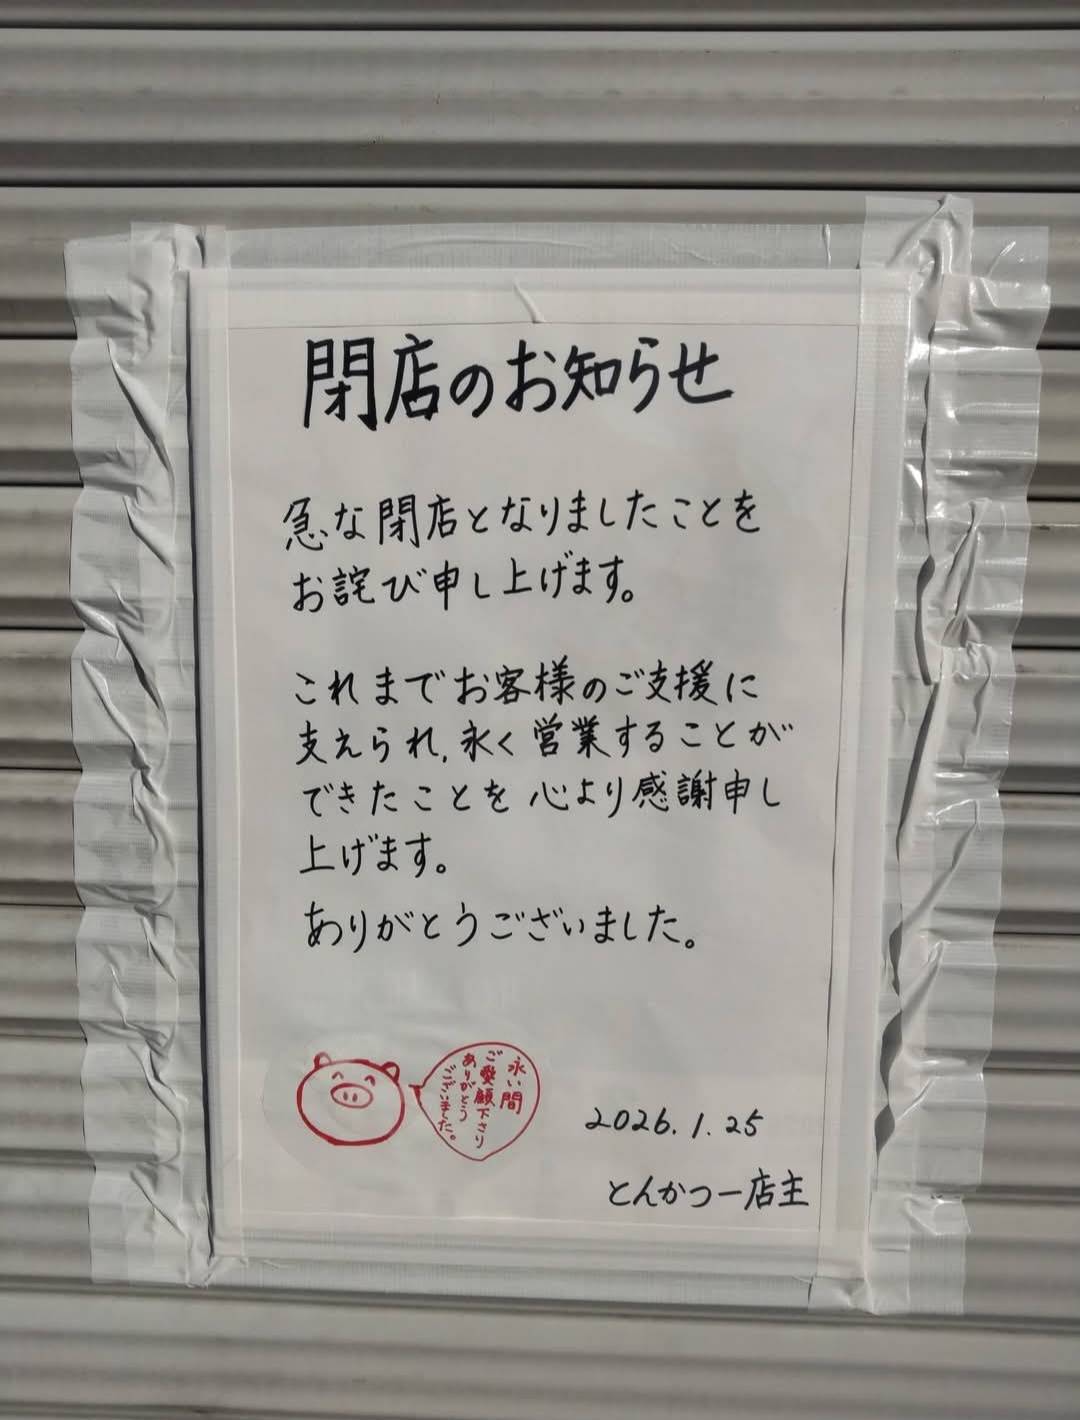 閉店のお知らせ
急な閉店となりましたことを
お詫び申し上げます。
これまでお客様のご支援に
支えられ、永く営業することが
できたことを心より感謝申し
上げます。
ありがとうございました。
永い間
ご愛顧下さり
ありがとう
ございました。
2026.1.25
とんかつ一店主